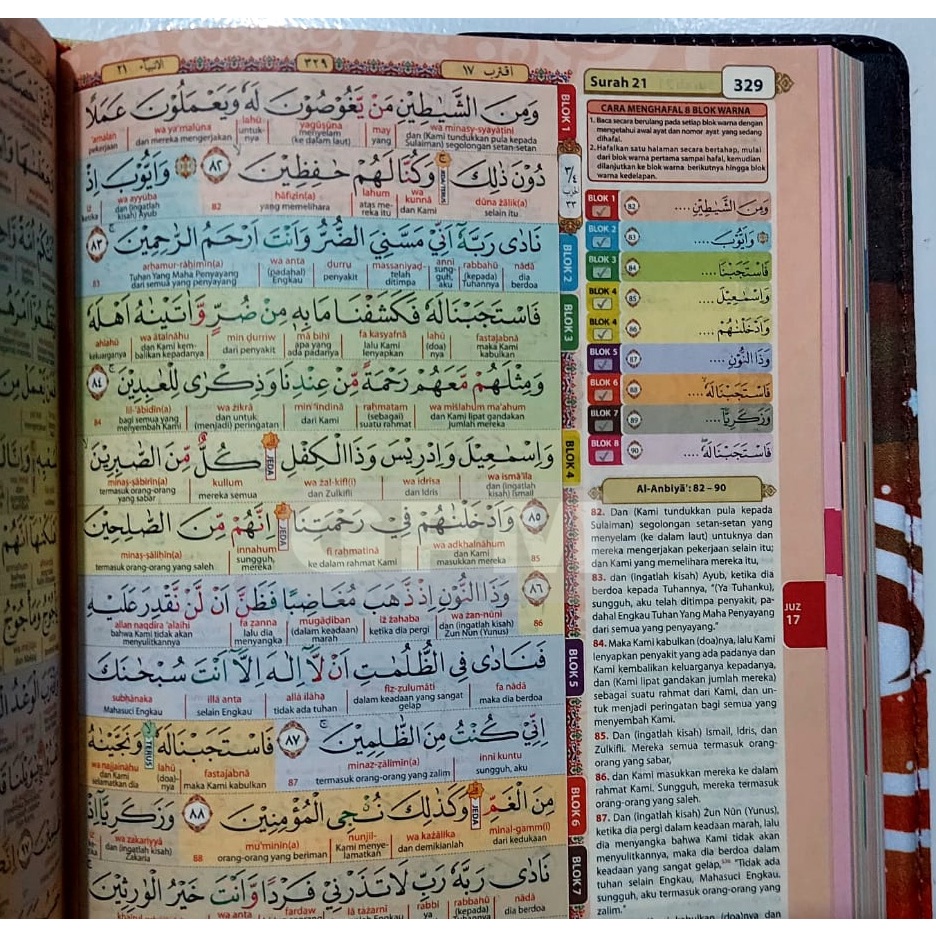 الانبياء ٢١
٣٢٩
اقترب ١٧
وَمِنَ الشَّيٰطِيْنِ مَنْ يَّغُوْصُوْنَ لَهٗ وَيَعْمَلُوْنَ عَمَلًا
wa minasy-syayāṭīni
dan (Kami tundukkan pula kepada
Sulaiman) segolongan setan-setan
may
yang
yagūṣūna
menyelam
(ke dalam laut)
lahū
untuk-
nya
wa ya'malūna
dan mereka mengerjakan
'amalan
pekerjaan
دُوْنَ ذٰلِكَۚ وَكُنَّا لَهُمْ حٰفِظِيْنَ ۙ ٨٢ ۞ وَاَيُّوْبَ اِذْ
dūna żālik(a)
selain itu
wa
kunnā
dan Kami
lahum
atas me-
reka itu
ḥāfiẓīn(a)
yang memelihara
82
wa ayyūba
dan (ingatlah
kisah) Ayub
iż
ketika
نَادٰى رَبَّهٗٓ اَنِّيْ مَسَّنِيَ الضُّرُّ وَاَنْتَ اَرْحَمُ الرّٰحِمِيْنَ ۚ ٨٣
nādā
dia
berdoa
rabbahū
(kepada)
Tuhannya
annī
sung-
guh,
aku
massaniyaḍ-
telah
ditimpa
ḍurru
penyakit
wa anta
(padahal)
Engkau
arḥamur-rāḥimīn(a)
Tuhan Yang Maha Penyayang
dari semua yang penyayang)
83
فَاسْتَجَبْنَا لَهٗ فَكَشَفْنَا مَا بِهٖ مِنْ ضُرٍّ وَّاٰتَيْنٰهُ اَهْلَهٗ
fastajabnā
maka Kami
kabulkan
lahū
(doa)
nya
fa kasyafnā
lalu Kami
lenyapkan
mā bihī
apa yang
ada padanya
min ḍurriw
dari penyakit
wa ātaināhu
dan Kami kem-
balikan kepadanya
ahlahū
keluarganya
وَمِثْلَهُمْ مَّعَهُمْ رَحْمَةً مِّنْ عِنْدِنَا وَذِكْرٰى لِلْعٰبِدِيْنَ ۚ ٨٤
wa miślahum ma'ahum
dan Kami lipat gandakan
jumlah mereka
raḥmatam
(sebagai)
suatu rahmat
min 'indinā
dari Kami
wa żikrā
dan untuk
(menjadi) peringatan
lil-'ābidīn(a)
bagi semua yang
menyembah Kami
84
وَاِسْمٰعِيْلَ وَاِدْرِيْسَ وَذَا الْكِفْلِۗ كُلٌّ مِّنَ الصّٰبِرِيْنَ
wa ismā'īla
dan (ingatlah
kisah) Ismail
wa idrīsa
dan Idris
wa żal-kifl(i)
dan Zulkifli
JEDA
kullum
mereka semua
minaṣ-ṣābirīn(a)
termasuk orang-orang
yang sabar
٨٥ وَاَدْخَلْنٰهُمْ فِيْ رَحْمَتِنَاۗ اِنَّهُمْ مِّنَ الصّٰلِحِيْنَ
85
wa adkhalnāhum
dan Kami
masukkan mereka
fī raḥmatinā
ke dalam rahmat Kami
JEDA
innahum
sungguh,
mereka
minaṣ-ṣāliḥīn(a)
termasuk orang-orang yang saleh
٨٦ وَذَا النُّوْنِ اِذْ ذَّهَبَ مُغَاضِبًا فَظَنَّ اَنْ لَّنْ نَّقْدِرَ عَلَيْهِ
86
wa żan-nūni
dan (ingatlah kisah)
Zun Nūn (Yunus)
iż żahaba
ketika dia pergi
mugāḍiban
(dalam keadaan)
marah
fa ẓanna
lalu dia
menyangka
allan naqdira 'alaihi
bahwa Kami tidak akan
menyulitkannya
فَنَادٰى فِى الظُّلُمٰتِ اَنْ لَّآ اِلٰهَ اِلَّآ اَنْتَ سُبْحٰنَكَ
fa nādā
maka dia berdoa
fiẓ-ẓulumāti
dalam keadaan yang sangat
gelap
allā ilāha
tidak ada tuhan
illā anta
selain Engkau
subḥānaka
Mahasuci Engkau
اِنِّيْ كُنْتُ مِنَ الظّٰلِمِيْنَ ۚ ٨٧ فَاسْتَجَبْنَا لَهٗۙ وَنَجَّيْنٰهُ
innī kuntu
sungguh, aku
minaẓ-ẓālimīn(a)
termasuk orang-orang yang zalim
87
fastajabnā
maka Kami kabulkan
lahū
(doa)-
nya
TERUS
wa najjaināhu
dan Kami
selamatkan dia
مِنَ الْغَمِّۗ وَكَذٰلِكَ نُنْجِى الْمُؤْمِنِيْنَ ٨٨ وَزَكَرِيَّآ اِذْ
minal-gamm(i)
dari kedukaan
JEDA
wa każālika
dan demikianlah
nunjil-
Kami menye-
lamatkan
mu'minīn(a)
orang-orang yang beriman
88
wa zakariyyā
dan (ingatlah kisah)
Zakaria
نَادٰى رَبَّهٗ رَبِّ لَا تَذَرْنِيْ فَرْدًا وَّاَنْتَ خَيْرُ الْوٰرِثِيْنَ
nādā
dia berdoa
rabbahū
(kepada)
rabbi
ya
lā tażarnī
fardaw
wa anta
BLOK 1
BLOK 2
BLOK 3
BLOK 4
BLOK 5
BLOK 6
BLOK 7
Surah 21
329
CARA MENGHAFAL 8 BLOK WARNA
1. Baca secara berulang pada setiap blok warna dengan
mengetahui awal ayat dan nomor ayat yang sedang
dihafal.
2. Hafalkan satu halaman secara bertahap, mulai
dari blok warna pertama sampai hafal, kemudian
dilanjutkan ke blok warna berikutnya hingga blok
warna kedelapan.
BLOK 1 82 وَمِنَ الشَّيٰطِيْنِ ....
BLOK 2 83 ۞ وَاَيُّوْبَ ....
BLOK 3 84 فَاسْتَجَبْنَا ....
BLOK 4 85 وَاِسْمٰعِيْلَ ....
BLOK 4 86 وَاَدْخَلْنٰهُمْ ....
BLOK 5 87 وَذَا النُّوْنِ ....
BLOK 6 88 فَاسْتَجَبْنَا لَهٗ ....
BLOK 7 89 وَزَكَرِيَّآ ....
BLOK 8 90 فَاسْتَجَبْنَا لَهٗ ....
Al-Anbiyā': 82 – 90
82. Dan (Kami tundukkan pula kepada
Sulaiman) segolongan setan-setan yang
menyelam (ke dalam laut) untuknya dan
mereka mengerjakan pekerjaan selain itu;
dan Kami yang memelihara mereka itu,
83. dan (ingatlah kisah) Ayub, ketika dia
berdoa kepada Tuhannya, "(Ya Tuhanku),
sungguh, aku telah ditimpa penyakit, pa-
dahal Engkau Tuhan Yang Maha Penyayang
dari semua yang penyayang."
84. Maka Kami kabulkan (doa)nya, lalu Kami
lenyapkan penyakit yang ada padanya dan
Kami kembalikan keluarganya kepadanya,
dan (Kami lipat gandakan jumlah mereka)
sebagai suatu rahmat dari Kami, dan un-
tuk menjadi peringatan bagi semua yang
menyembah Kami.
85. Dan (ingatlah kisah) Ismail, Idris, dan
Zulkifli. Mereka semua termasuk orang-
orang yang sabar,
86. dan Kami masukkan mereka ke dalam
rahmat Kami. Sungguh, mereka termasuk
orang-orang yang saleh.
87. Dan (ingatlah kisah) Zun Nūn (Yunus),
ketika dia pergi dalam keadaan marah, lalu
dia menyangka bahwa Kami tidak akan
menyulitkannya, maka dia berdoa dalam
keadaan yang sangat gelap, "Tidak ada
tuhan selain Engkau, Mahasuci Engkau.
sungguh, aku termasuk orang-orang yang
zalim."
JUZ
17